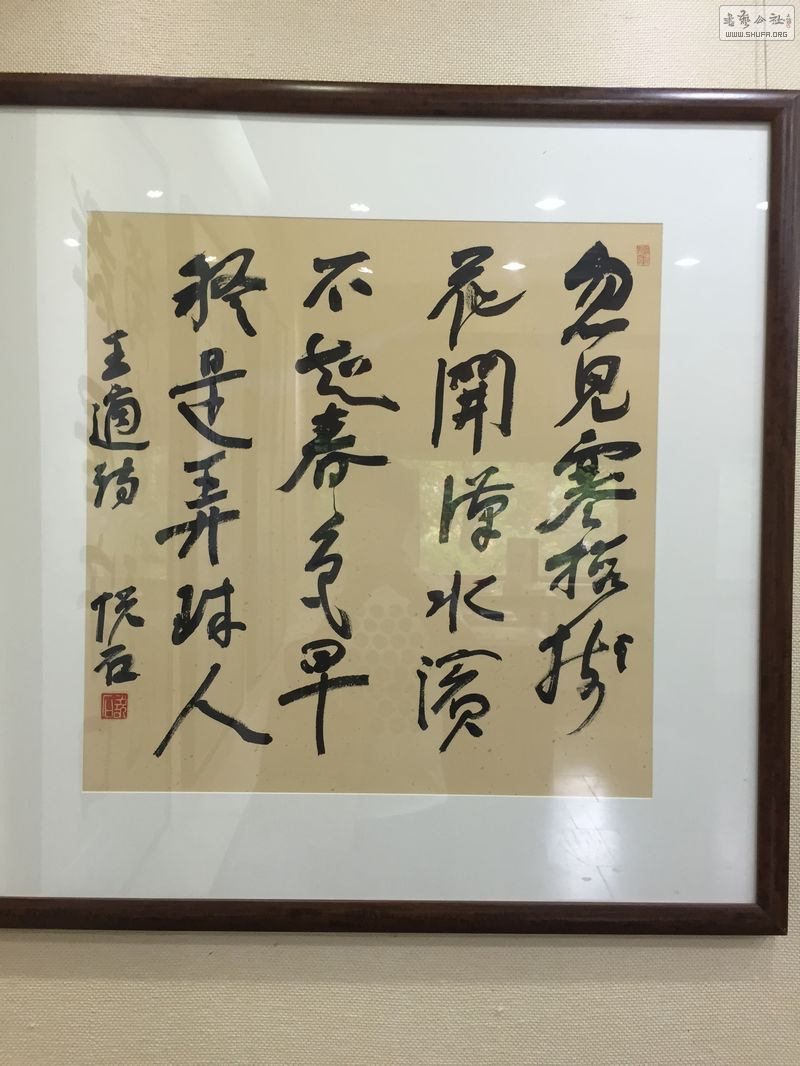 忽見寒梅樹
花開漢水濱
不知春色早
疑是弄珠人
王適詩 悦石
书艺公社
WWW.SHUFA.ORG